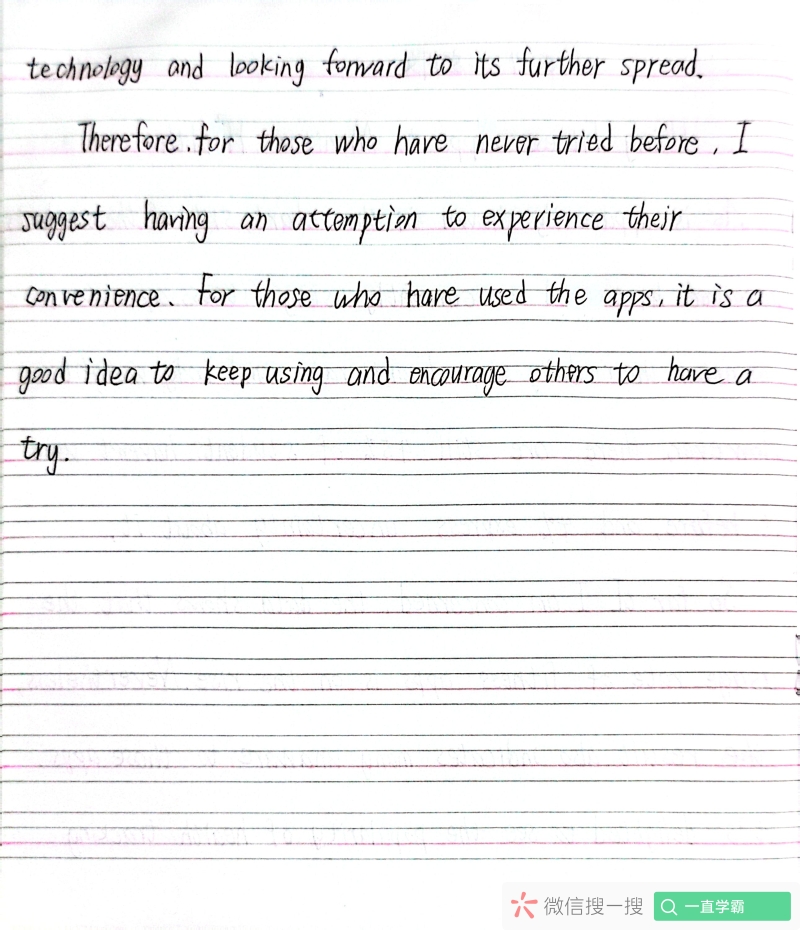 technology and looking forward to its further spread.
Therefore, for those who have never tried before, I
suggest having an attemption to experience their
convenience. For those who have used the apps, it is a
good idea to keep using and encourage others to have a
try.
微信搜一搜
一直学霸